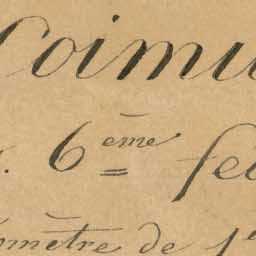 Coimu
. 6ème feu
mètre de 1e